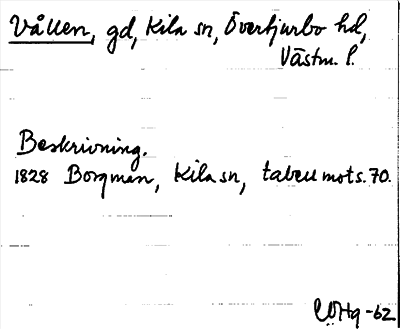 Vållen, gd, Kila sn, Övertjurbo hd,
Västm. l.
Beskrivning.
1828 Borgman, Kila sn, tabell mots. 70.
-62